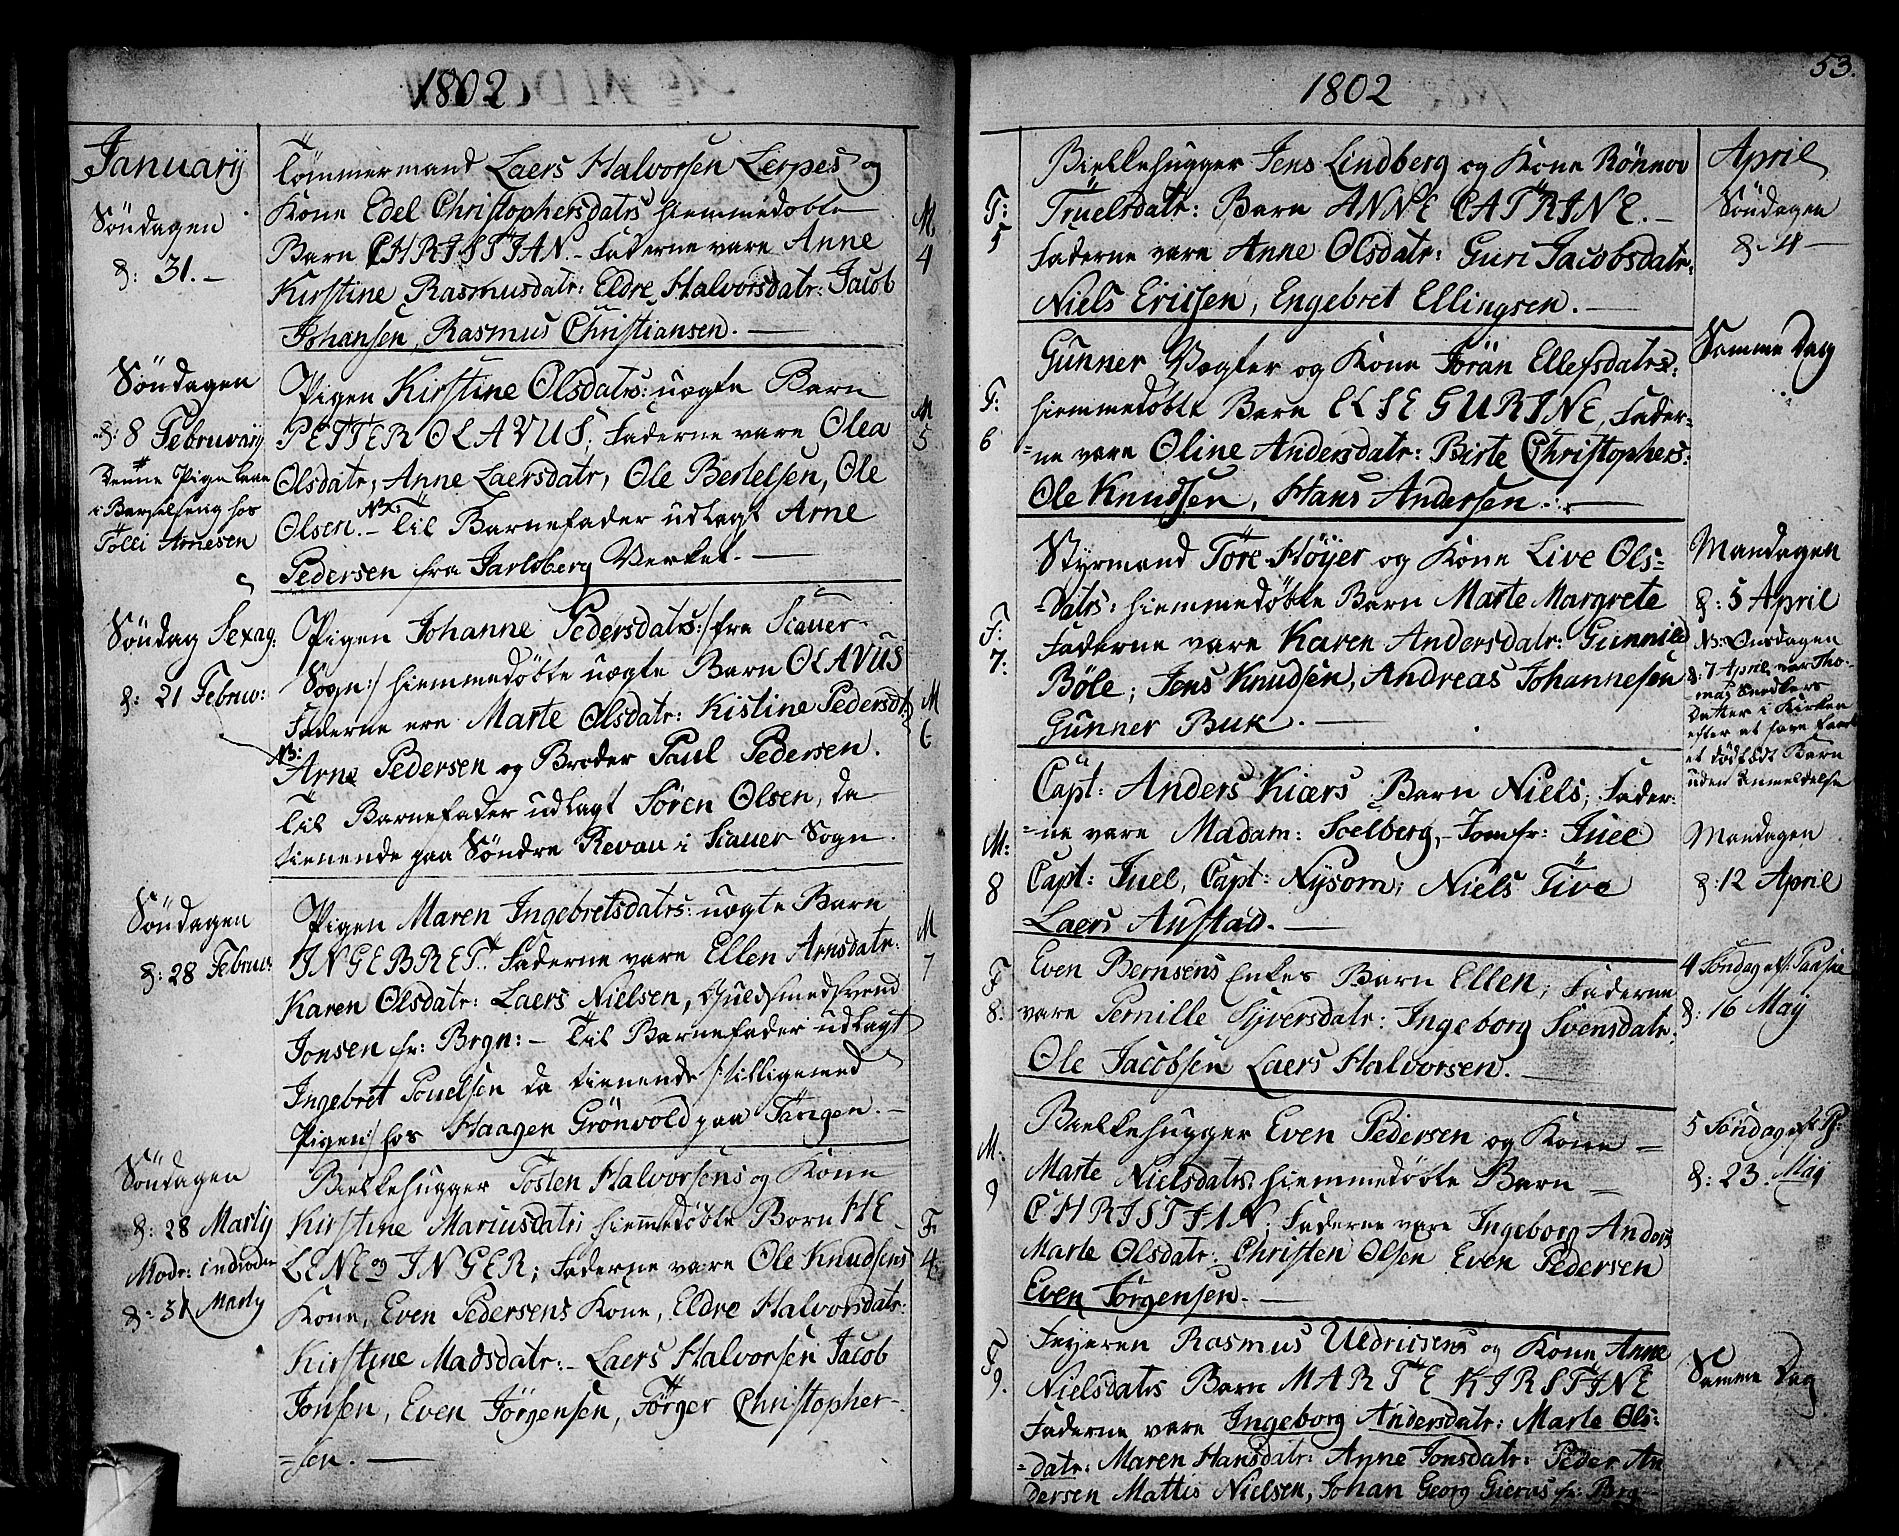 1802
Januarij
Söndagen
d: 31. –
Tömmermand Laers Halvorsen Lerpes og
Kone Edel Christophersdatrs hiemmedøbte
Barn CHRISTIAN. – Fadderne vare Anne
Kirstine Rasmusdatr: Eldre Halvorsdatr: Jacob
Johansen, Rasmus Christiansen. –
M.
4
Söndagen
d: 8 Februarij
Denne Pige laae
i Barselseng hos
Tolli Arnesen
Pigen Kirstine Olsdatrs: uægte Barn
PETTER OLAVUS; Fadderne vare Olea
Olsdatr, Anne Laersdatr, Ole Bertelsen, Ole
Olsen. – Til Barnefader udlagt Arne
Pedersen fra Jarlsberg Verket. –
M
5
Söndag Sexag:
d: 21 Februar:
Pigen Johanne Pedersdatrs:/ fra Scauer-
Sogn:/ hiemmedøbte uægte Barn OLAVUS
Fadderne ere Marte Olsdatr: Kistine Pedersdtr
NB:
Arne Pedersen og Broder Paul Pedersen.
Til Barnefader udlagt Sören Olsen, da
tienende paa Söndre Revau i Scauer Sogn.
M
6
Söndagen
d: 28 Februar:
Pigen Maren Ingebretsdatrs: uægte Barn
INGEBRET. Fadderne vare Ellen Arnsdatr:
Karen Olsdatr: Laers Nielsen, Guldsmedsvend
Jonsen fr: Brgn: – Til Barnefader udlagt
Ingebret Pouelsen da tienende /: tilligemed
Pigen:/ hos Haagen Grönvold paa Tangen. –
M
7
Söndagen
d: 28 Martij
Modr: introd
d: 31 Martij
Bielkehugger Tosten Halvorsens og Kone
Kirstine Mariusdatr: hiemmedøbte Børn HE-
LENE og INGER; Fadderne vare Ole Knudsens
Kone, Even Pedersens Kone, Eldre Halvorsdatr:
Kirstine Madsdatr: – Laers Halvorsen Jacob
Jonsen, Even Jörgensen, Törger Christopher-
=sen. –
F.
4
1802
53.
F:
5
Bielkehugger Jens Lindberg og Kone Rönnov
Truelsdatr: Barn ANNE CATRINE. –
Fadderne vare Anne Olsdatr: Guri Jacobsdatr:
Niels Ericsen, Engebret Ellingsen. –
April
Söndagen
d. 4 –
F:
6
Gunner Vegter og Kone Jörån Ellefsdatrs:
hiemmedøbte Barn ELSE GURINE, Fader-
=ne vare Oline Andersdatr: Birte Christophers:
Ole Knudsen, Hans Andersen. –
Samme Dag
F:
7:
Styrmand Töre Höyer og Kone Live Ols=
=datrs: hiemmedøbte Barn Marte Margrete
Fadderne vare Karen Andersdatr: Gunnild
Böle; Jens Knudsen, Andreas Johannesen
Gunner Buk. –
Mandagen
d: 5 April
NB: Onsdagen
d: 7 April var Tho-
mas Snedkers
Datter i Kirken
efter at have faaet
et dödfödt Barn
uden Anmeldelse
M:
8
Capt: Anders Kiærs Barn Niels; Fader-
=ne vare Madam: Soelberg, – Jomfr: Juel
Capt: Juel, Capt: Nysom; Niels Tive
Laers Austad. –
Mandagen
d: 12 April
F
8.
Even Bernsens Enkes Barn Ellen; Fadderne
vare Pernille Syversdatr: Ingeborg Svensdatr:
Ole Jacobsen Laers Halvorsen. –
4 Söndag eft: Paaske
d: 16 Maij
M.
9
Bielkehugger Even Pedersen og Kone –
Marte Nielsdatrs: hiemmedøbte Barn –
CHRISTIAN; Fadderne vare Ingeborg Anders
Marte Olsdatr: Christen Olsen Even Pedersen
Even Jörgensen. –
5 Söndag eft P:
d: 23. Maij
F
9.
Feyeren Rasmus Uldricsens og Kone Anne
Nielsdatrs Barn MARTE KIRSTINE
Fadderne vare Ingeborg Andersdatr: Marte Ols:
=datr: Maren Hansdatr: Anne Jonsdatr: Peder An
dersen Mattis Nielsen, Johan Georg Gierus fr: Brg –
Samme Dag